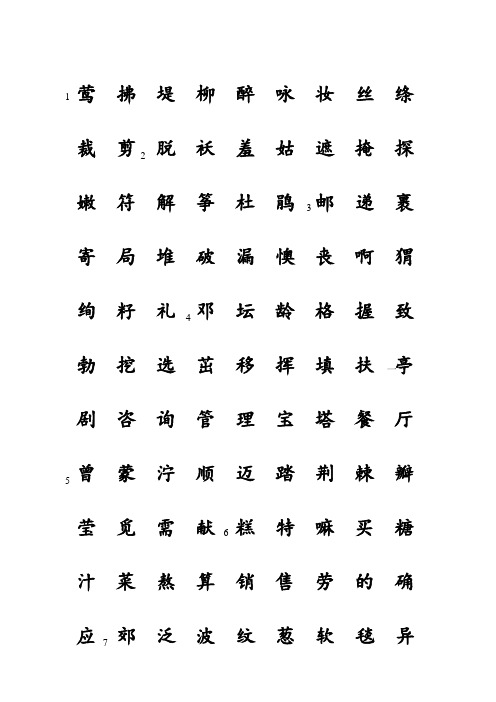 1莺 拂 堤 柳 醉 咏 妆 丝 绦
裁 剪 2脱 袄 羞 姑 遮 掩 探
嫩 符 解 筝 杜 鹃 3邮 递 裹
寄 局 堆 破 漏 懊 丧 啊 猬
绚 籽 礼 4邓 坛 龄 格 握 致
勃 挖 选 茁 移 挥 填 扶 亭
剧 咨 询 管 理 宝 塔 餐 厅
5曾 蒙 泞 顺 迈 踏 荆 棘 瓣
莹 觅 需 献 6糕 特 嘛 买 糖
汁 菜 熬 算 销 售 劳 的 确
应 7郊 泛 波 纹 葱 软 毯 异